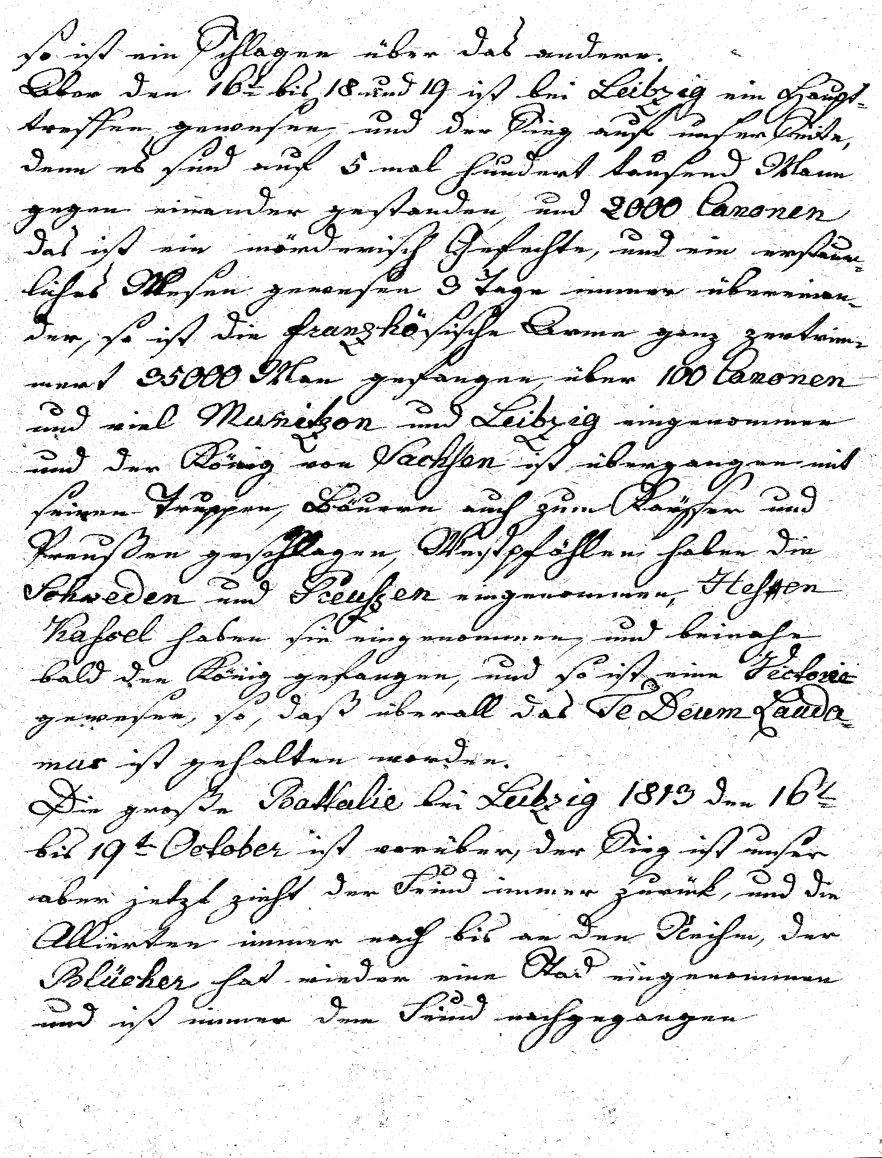 so ist ein Schlagen über das andere.
Aber den 16t bis 18 und 19 ist bei Leibzig ein Haupt-
treffen gewesen, und der Sieg auf unser Seite,
denn es sind auf 5 mal hundert tausend Mann
gegen einander gestanden, und 2000 Canonen
das ist ein mörderisch Gefechte, und ein erstaun-
liches Wesen gewesen 3 Tage immer übereinan-
der, so ist die franzhösische Arme ganz zertrim-
mert 35000 Man gefangen, über 100 Canonen
und viel Munitzon und Leibzig eingenommen
und der König von Sachsen ist übergangen mit
seinen Truppen, Bäuern auch zum Kaÿser und
Preußen geschlagen, Westpfählen haben die
Schweden und Preuszen eingenommen, Hessen
Kassel haben sie eingenommen, und beinahe
bald den König gefangen, und so ist eine Fictorie
gewesen, so, daß überall das Te Deum Lauda-
mus ist gehalten worden.
Die große Battalie bei Leibzig 1813 den 16t
bis 19t October ist vorüber, der Sieg ist unser
aber jetzt zieht der Feind immer zurück, und die
Allierten immer nach bis an den Reihm, der
Blücher hat wieder eine Stad eingenommen
und ist immer dem Feind nachgegangen